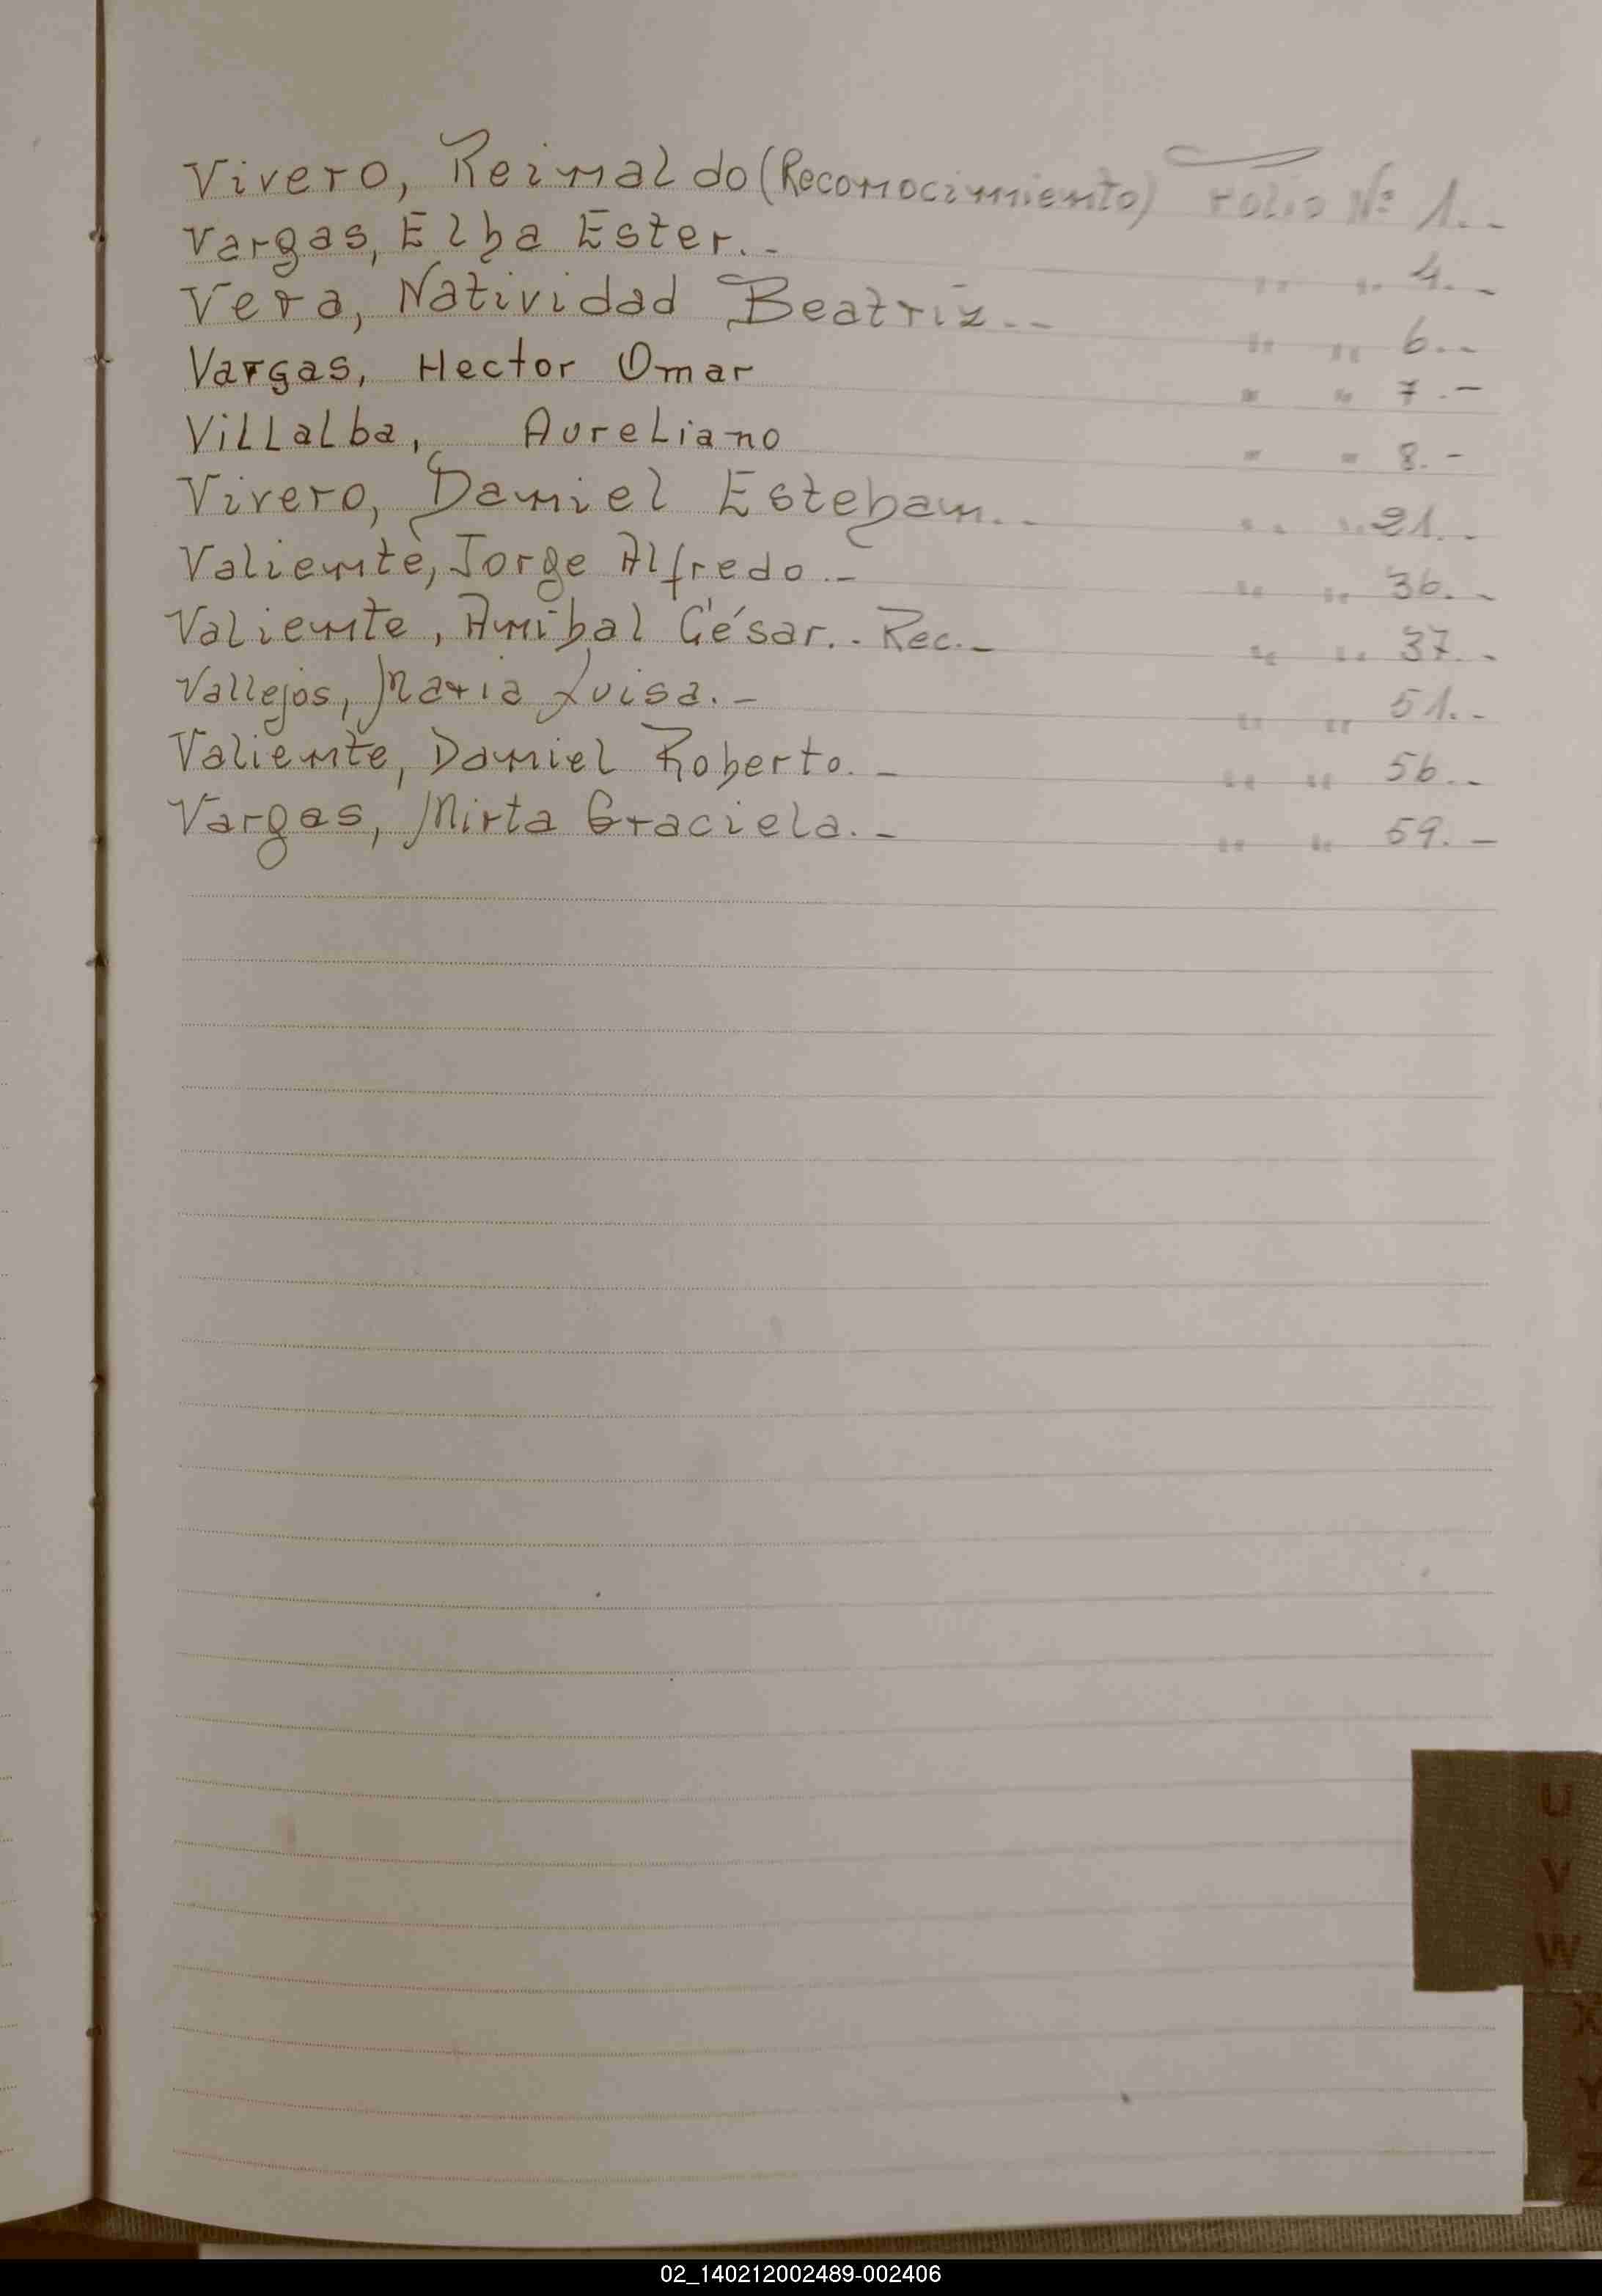 Vivero, Reinaldo (Reconocimiento) Folio Nº 1.-
Vargas, Elba Ester.- " " 4.-
Vera, Natividad Beatriz.- " " 6.-
Vargas, Hector Omar " " 7.-
Villalba, Aureliano " " 8.-
Vivero, Daniel Esteban.- " " 21.-
Valiente, Jorge Alfredo.- " " 36.-
Valiente, Anibal César.- Rec.- " " 37.-
Vallejos, Maria Luisa.- " " 51.-
Valiente, Daniel Roberto.- " " 56.-
Vargas, Mirta Graciela.- " " 59.-
U
V
W
X
Y
Z
02_140212002489-002406